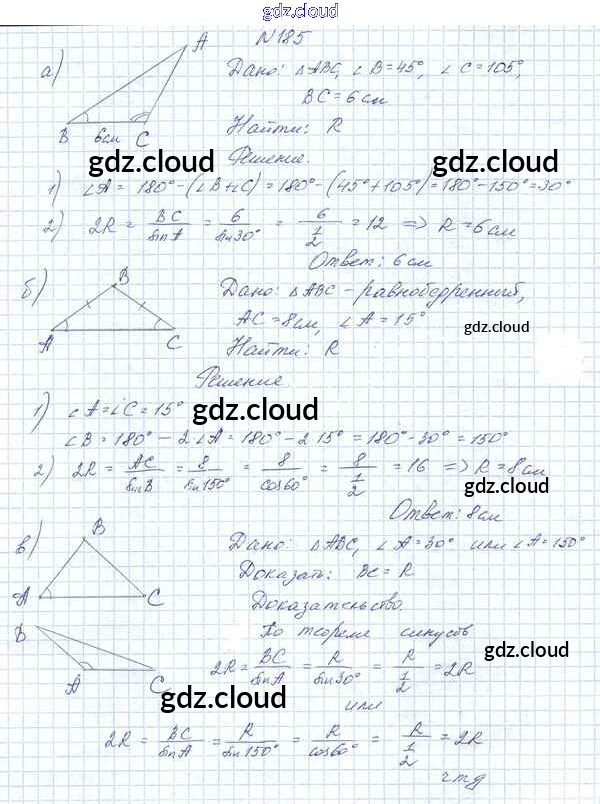 gdz.cloud
N 185
а)
A
B 6см C
Дано: △ABC, ∠B=45°, ∠C=105°,
BC=6см
Найти: R
Решение.
gdz.cloud gdz.cloud
1) ∠A = 180°-(∠B+∠C)=180°-(45°+105°)=180°-150°=30°
2) 2R = BC/sinA = 6/sin30° = 6/(1/2) = 12 ⇒ R=6см
Ответ: 6см
б)
B
A C
Дано: △ABC - равнобедренный,
AC=8см, ∠A=15°
gdz.cloud
Найти: R
Решение.
gdz.cloud
1) ∠A=∠C=15°
∠B=180°-2∠A=180°-2 15°=180°-30°=150°
2) 2R = AC/sinB = 8/sin150° = 8/cos60° = 8/(1/2) = 16 ⇒ R=8см
gdz.cloud gdz.cloud
Ответ: 8см
в)
B
A C
Дано: △ABC, ∠A=30° или ∠A=150°
Доказать: BC=R
Доказательство.
B
A C
По теореме синусов
gdz.cloud gdz.cloud
2R = BC/sinA = R/sin30° = R/(1/2) = 2R
gdz.cloud
или
2R = BC/sinA = R/sin150° = R/cos60° = R/(1/2) = 2R
чтд